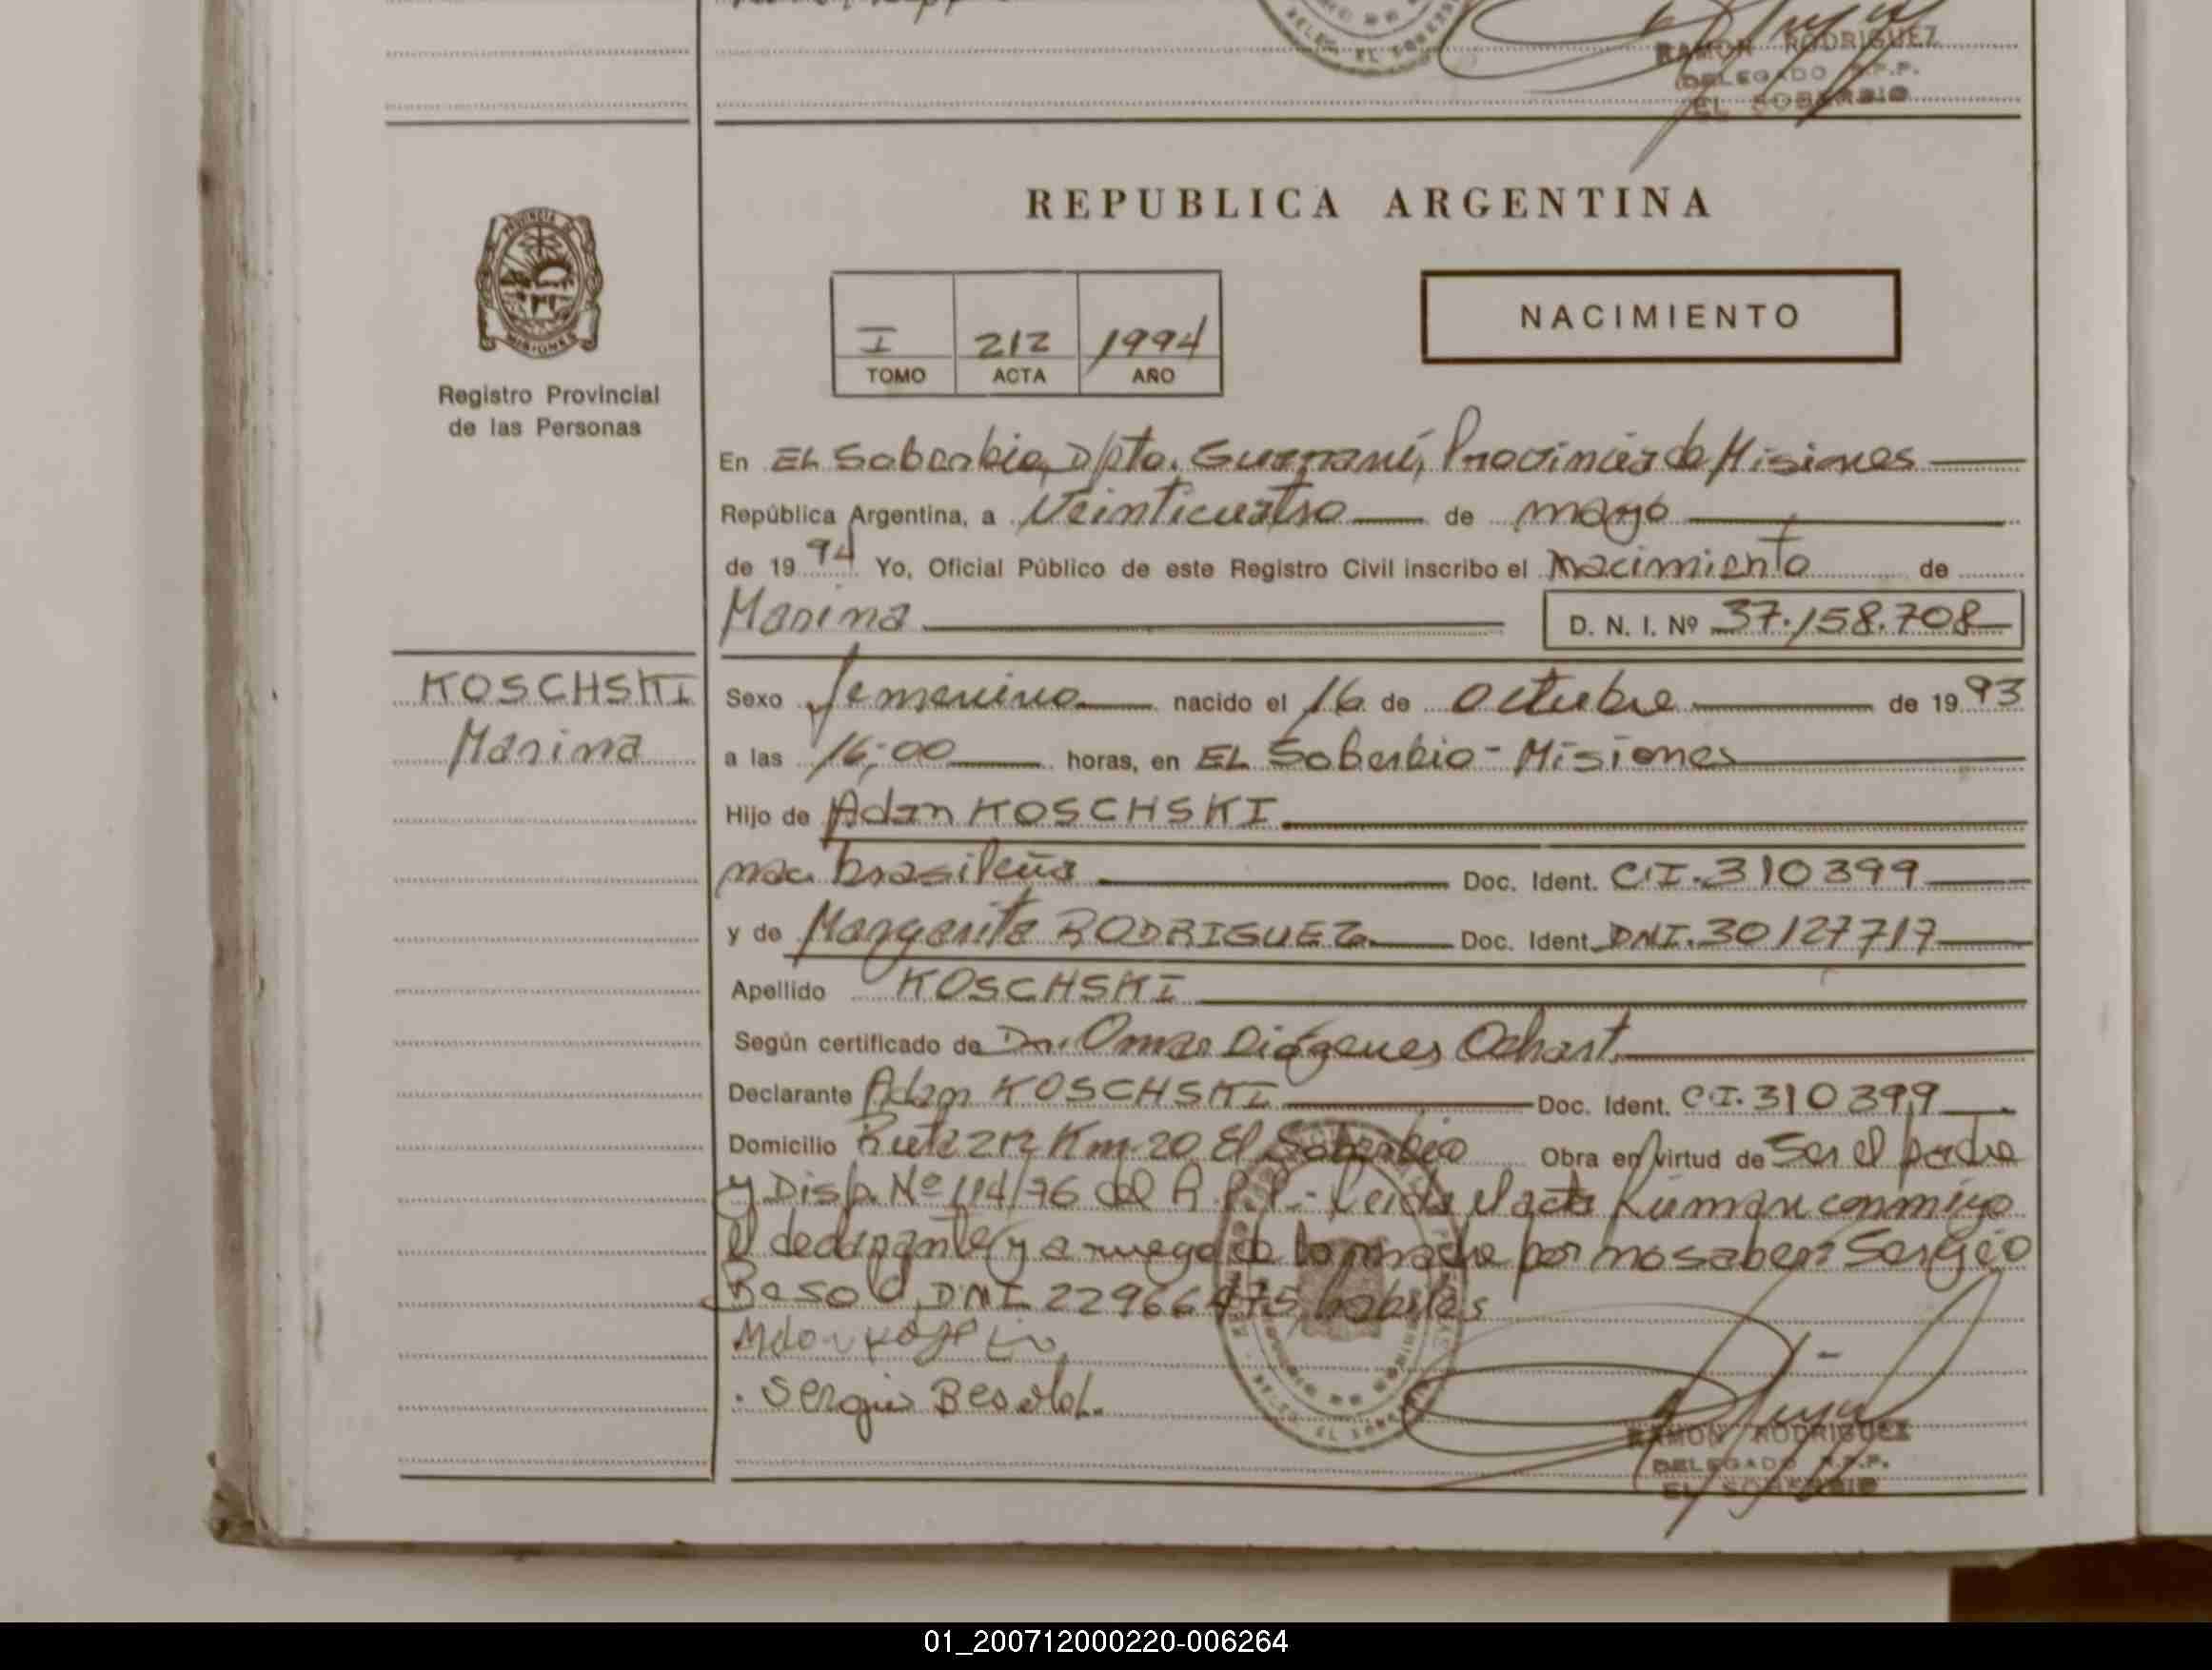 RAMON RODRIGUEZ
DELEGADO R.P.P.
EL SOBERBIO
PROVINCIA DE
MISIONES
Registro Provincial
de las Personas
REPUBLICA ARGENTINA
I 212 1994
TOMO ACTA AÑO
NACIMIENTO
En EL Soberbio, Dpto. Guaraní, Provincia de Misiones
República Argentina, a Veinticuatro de mayo
de 1994 Yo, Oficial Público de este Registro Civil inscribo el nacimiento de
Marina D. N. I. Nº 37.158.708
KOSCHSKI
Marina
Sexo femenino nacido el 16 de octubre de 1993
a las 16,00 horas, en EL Soberbio - Misiones
Hijo de Adan KOSCHSKI
nac. brasileña Doc. Ident. CI. 310399
y de Margarita RODRIGUEZ Doc. Ident. DNI. 30127717
Apellido KOSCHSKI
Según certificado de Dr. Omar Diógenes Ochart
Declarante Adan KOSCHSKI Doc. Ident. CI. 310399
Domicilio Ruta 212 Km 20 El Soberbio Obra en virtud de Ser el padre
y Disp. Nº 114/76 del R.P.P.- Leída el acta firman conmigo
el declarante y a ruego de la madre por no saber Sergio
Besold, DNI 22966475, habiles
Sergio Besold.
RAMON RODRIGUEZ
DELEGADO R.P.P.
EL SOBERBIO
01_200712000220-006264